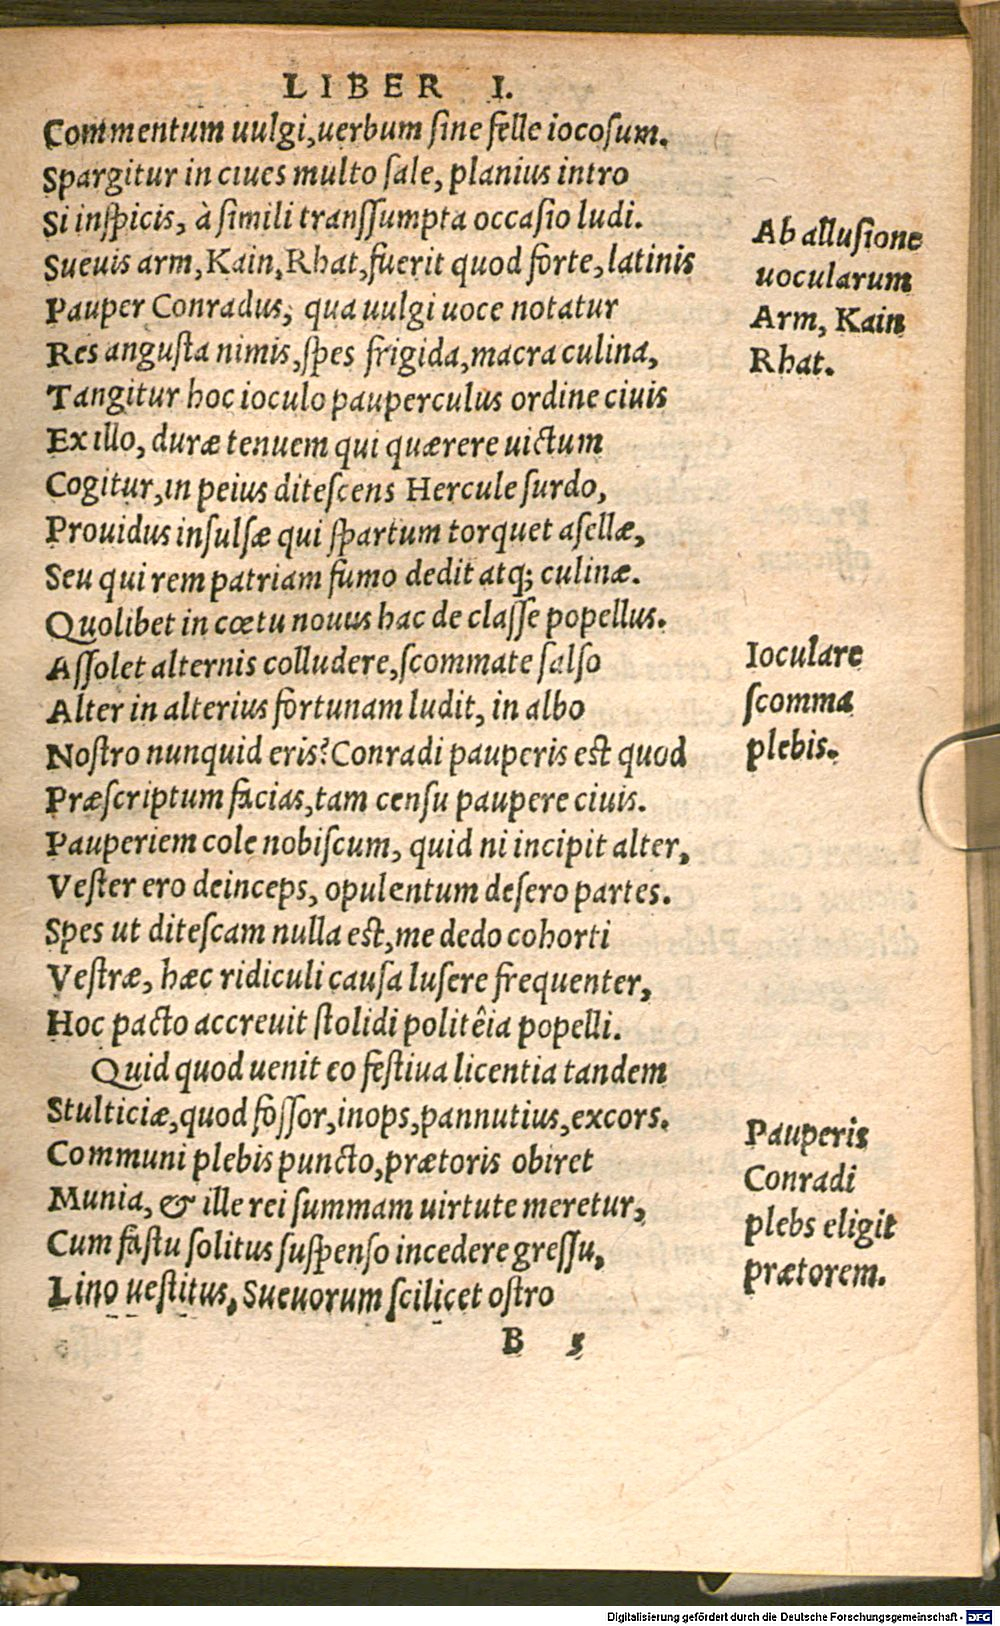 LIBER I.
Commentum uulgi, uerbum sine felle iocosum.
Spargitur in ciues multo sale, planius intro
Si inspicis, à simili transsumpta occasio ludi.
Sueuis arm, Kain, Rhat, fuerit quod forte, latinis
Pauper Conradus, qua uulgi uoce notatur
Res angusta nimis, spes frigida, macra culina,
Tangitur hoc ioculo pauperculus ordine ciuis
Ex illo, duræ tenuem qui quærere uictum
Cogitur, in peius ditescens Hercule surdo,
Prouidus insulsæ qui spartum torquet asellæ,
Seu qui rem patriam fumo dedit atq; culinæ.
Quolibet in cœtu nouus hac de classe popellus.
Assolet alternis colludere, scommate salso
Alter in alterius fortunam ludit, in albo
Nostro nunquid eris? Conradi pauperis est quod
Præscriptum facias, tam censu paupere ciuis.
Pauperiem cole nobiscum, quid ni incipit alter,
Vester ero deinceps, opulentum desero partes.
Spes ut ditescam nulla est, me dedo cohorti
Vestræ, hæc ridiculi causa lusere frequenter,
Hoc pacto accreuit stolidi politêia popelli.
Quid quod uenit eo festiua licentia tandem
Stulticiæ, quod fossor, inops, pannutius, excors.
Communi plebis puncto, prætoris obiret
Munia, & ille rei summam uirtute meretur,
Cum fastu solitus suspenso incedere gressu,
Lino uestitus, Sueuorum scilicet ostro
B 5
Ab allusione
uocularum
Arm, Kain
Rhat.
Ioculare
scomma
plebis.
Pauperis
Conradi
plebs eligit
prætorem.
Digitalisierung gefördert durch die Deutsche Forschungsgemeinschaft - DFG